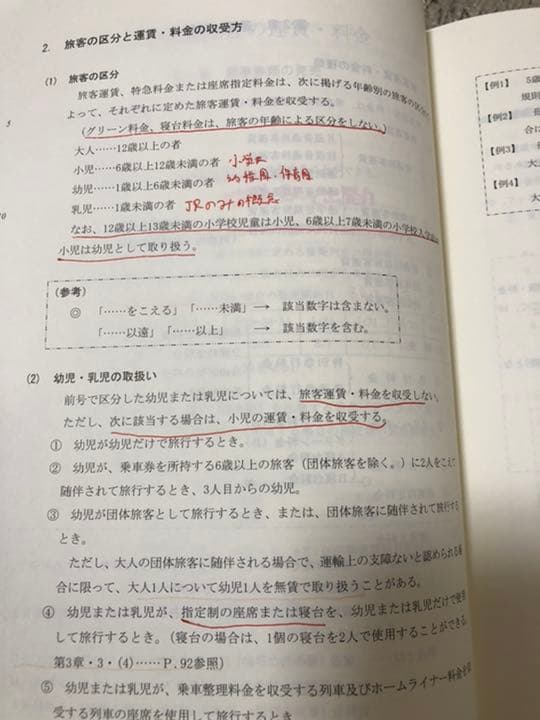 2. 旅客の区分と運賃・料金の収受方
(1) 旅客の区分
旅客運賃、特急料金または座席指定料金は、次に掲げる年齢別の旅客の区分に
よって、それぞれに定めた旅客運賃・料金を収受する。
(グリーン料金、寝台料金は、旅客の年齢による区分をしない。)
大人……12歳以上の者
小児……6歳以上12歳未満の者 小学生
幼児……1歳以上6歳未満の者 幼稚園・保育園
乳児……1歳未満の者 JRのみの概念
なお、12歳以上13歳未満の小学校児童は小児、6歳以上7歳未満の小学校入学前の
小児は幼児として取り扱う。
(参考)
◎ 「……をこえる」「……未満」→ 該当数字は含まない。
「……以遠」「……以上」→ 該当数字を含む。
(2) 幼児・乳児の取扱い
前号で区分した幼児または乳児については、旅客運賃・料金を収受しない。
ただし、次に該当する場合は、小児の運賃・料金を収受する。
① 幼児が幼児だけで旅行するとき。
② 幼児が、乗車券を所持する6歳以上の旅客(団体旅客を除く。)に2人をこえて
随伴されて旅行するとき、3人目からの幼児。
③ 幼児が団体旅客として旅行するとき、または、団体旅客に随伴されて旅行する
とき。
ただし、大人の団体旅客に随伴される場合で、運輸上の支障ないと認められる場
合に限って、大人1人について幼児1人を無賃で取り扱うことがある。
④ 幼児または乳児が、指定制の座席または寝台を、幼児または乳児だけで使用
して旅行するとき。(寝台の場合は、1個の寝台を2人で使用することができる。
第3章・3・(4)……P.92参照)
⑤ 幼児または乳児が、乗車整理料金を収受する列車及びホームライナー料金を収
受する列車の座席を使用して旅行するとき
5
10
【例1】 5歳
規則
【例2】
合に
【例3】
【例4】
大